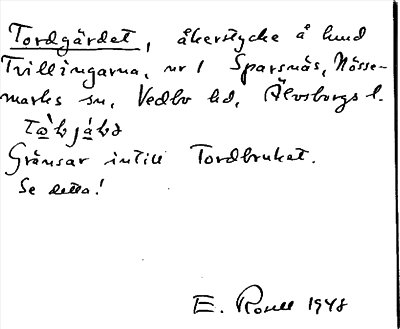 Tordgärdet, åkerstycke å hmd
Tvillingarna, nr 1 Sparsnäs, Nösse-
marks sn, Vedbo hd, Älvsborgs l.
Gränsar intill Tordbruket.
Se detta!
E. Rosell 1948